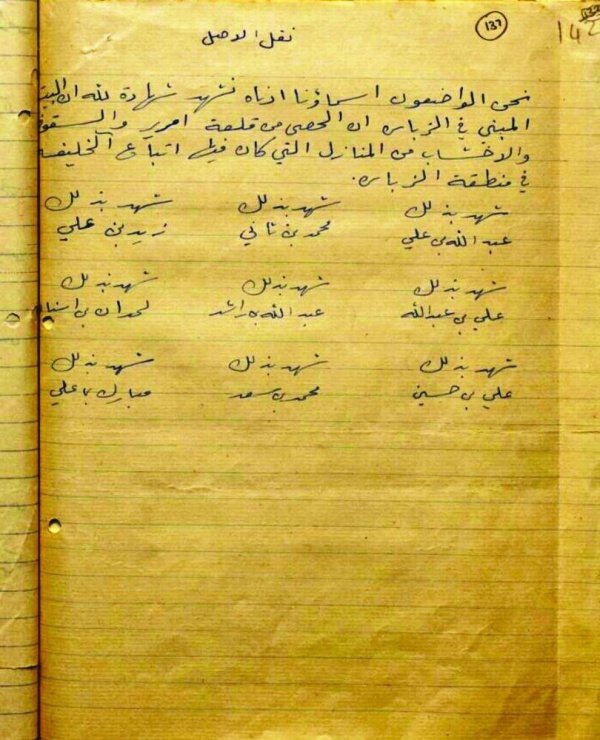 137
142
نقل الاصل
نحن الواضعون اسماؤنا ادناه نشهد شهادة لله ان البيت
المبني في الزباره ان الحصى من قلعة امرير والسقوف
والاخشاب من المنازل التي كان فيها اتباع آل خليفه
في منطقة الزباره.
شهد بذلك شهد بذلك شهد بذلك
عبد الله بن علي محمد بن ثاني زيد بن علي
شهد بذلك شهد بذلك شهد بذلك
علي بن عبدالله عبد الله بن راشد لحدان بن
شهد بذلك شهد بذلك شهد بذلك
علي بن حسين محمد بن سعد مبارك بن علي